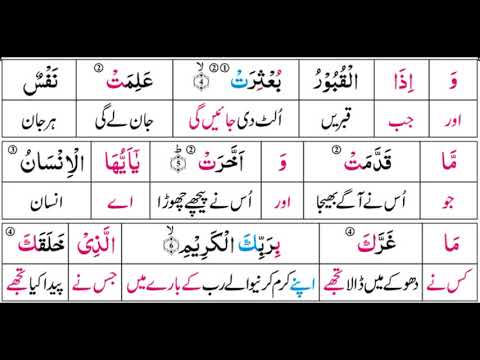 وَ اِذَا الْقُبُوْرُ بُعْثِرَتْ ①② ④ عَلِمَتْ ② نَفْسٌ
اور جب قبریں اُلٹ دی جائیں گی جان لے گی ہر جان
مَّا قَدَّمَتْ ② وَ اَخَّرَتْ ② ⑤ يٰۤاَيُّهَا الْاِنْسَانُ ③
جو اُس نے آگے بھیجا اور اُس نے پیچھے چھوڑا اے انسان
مَا غَرَّكَ ④ بِرَبِّكَ الْكَرِيْمِ ⑥ الَّذِيْ خَلَقَكَ ④
کس نے دھوکے میں ڈالا تجھے اپنے کرم کرنیوالے رب کے بارے میں جس نے پیدا کیا تجھے